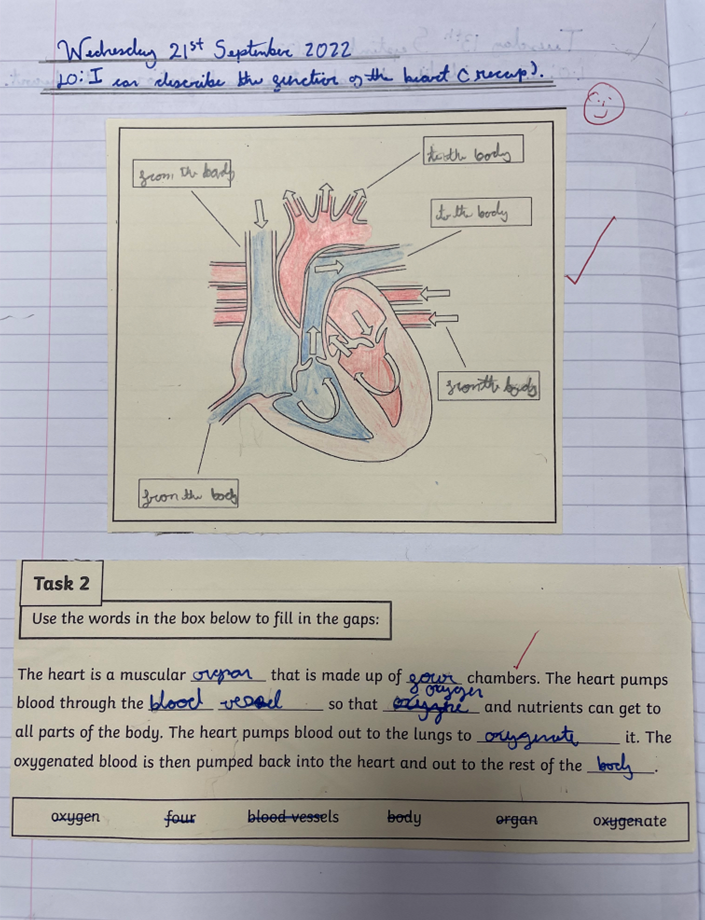 Wednesday 21st September 2022
LO: I can describe the function of the heart (recap).
from the body
to the body
to the body
from the body
from the body
Task 2
Use the words in the box below to fill in the gaps:
The heart is a muscular organ that is made up of four chambers. The heart pumps
oxygen
blood through the blood vessel so that and nutrients can get to
all parts of the body. The heart pumps blood out to the lungs to oxygenate it. The
oxygenated blood is then pumped back into the heart and out to the rest of the body.
oxygen four blood vessels body organ oxygenate